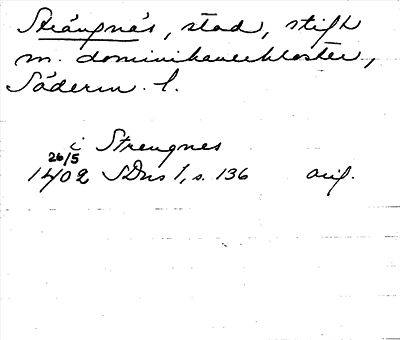 Strängnäs, stad, stift
m. dominikanerkloster,
Söderm. l.
i Strengnes
26/5
1402 SDns 1, s. 136 orig.